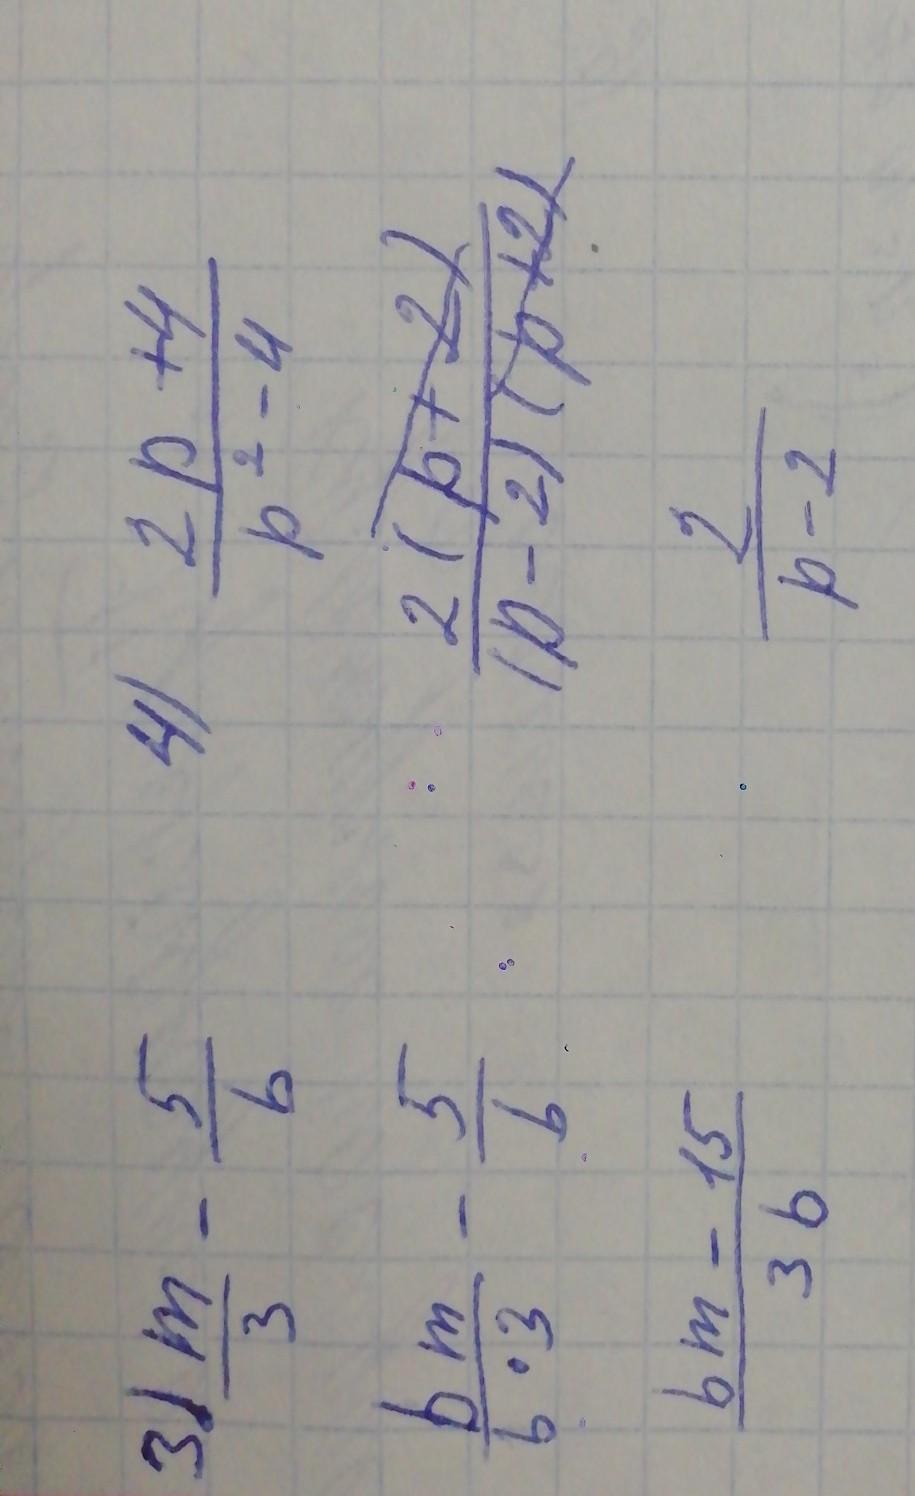 3) m/3 - 5/b
bm/b·3 - 5/b
bm - 15/3b
4) 2p + 4/p² - 4
2(p + 2)/(p - 2)(p + 2)
2/p - 2